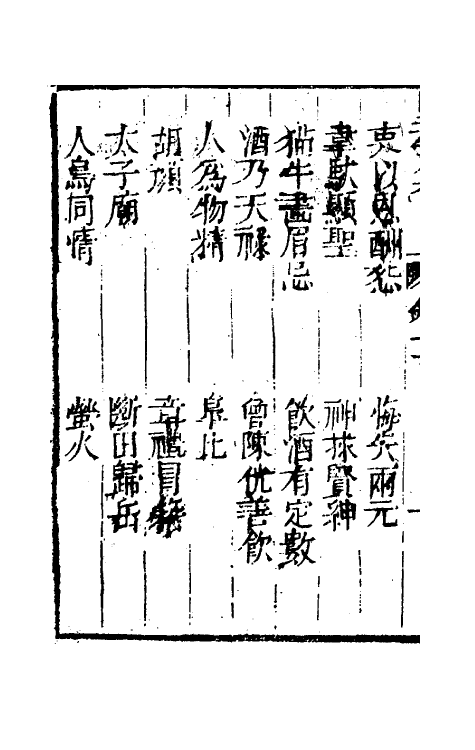 吏以恩酬怨
悔失兩元
韋馱顯聖
神救賢紳
猫牛畫眉忌
飲酒有定數
酒乃天祿
曾陳优善飲
人為物精
皋比
胡瓆
章禮冒籍
太子廟
斷田歸岳
人鳥同情
螢火